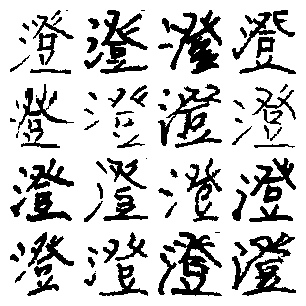 澄澄澄澄
澄澄澄澄
澄澄澄澄
澄澄澄澄